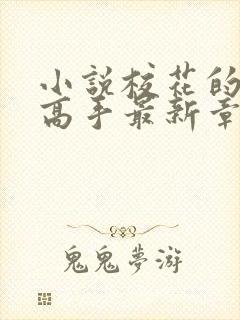 小說校花的
高手最新章
鬼鬼夢游